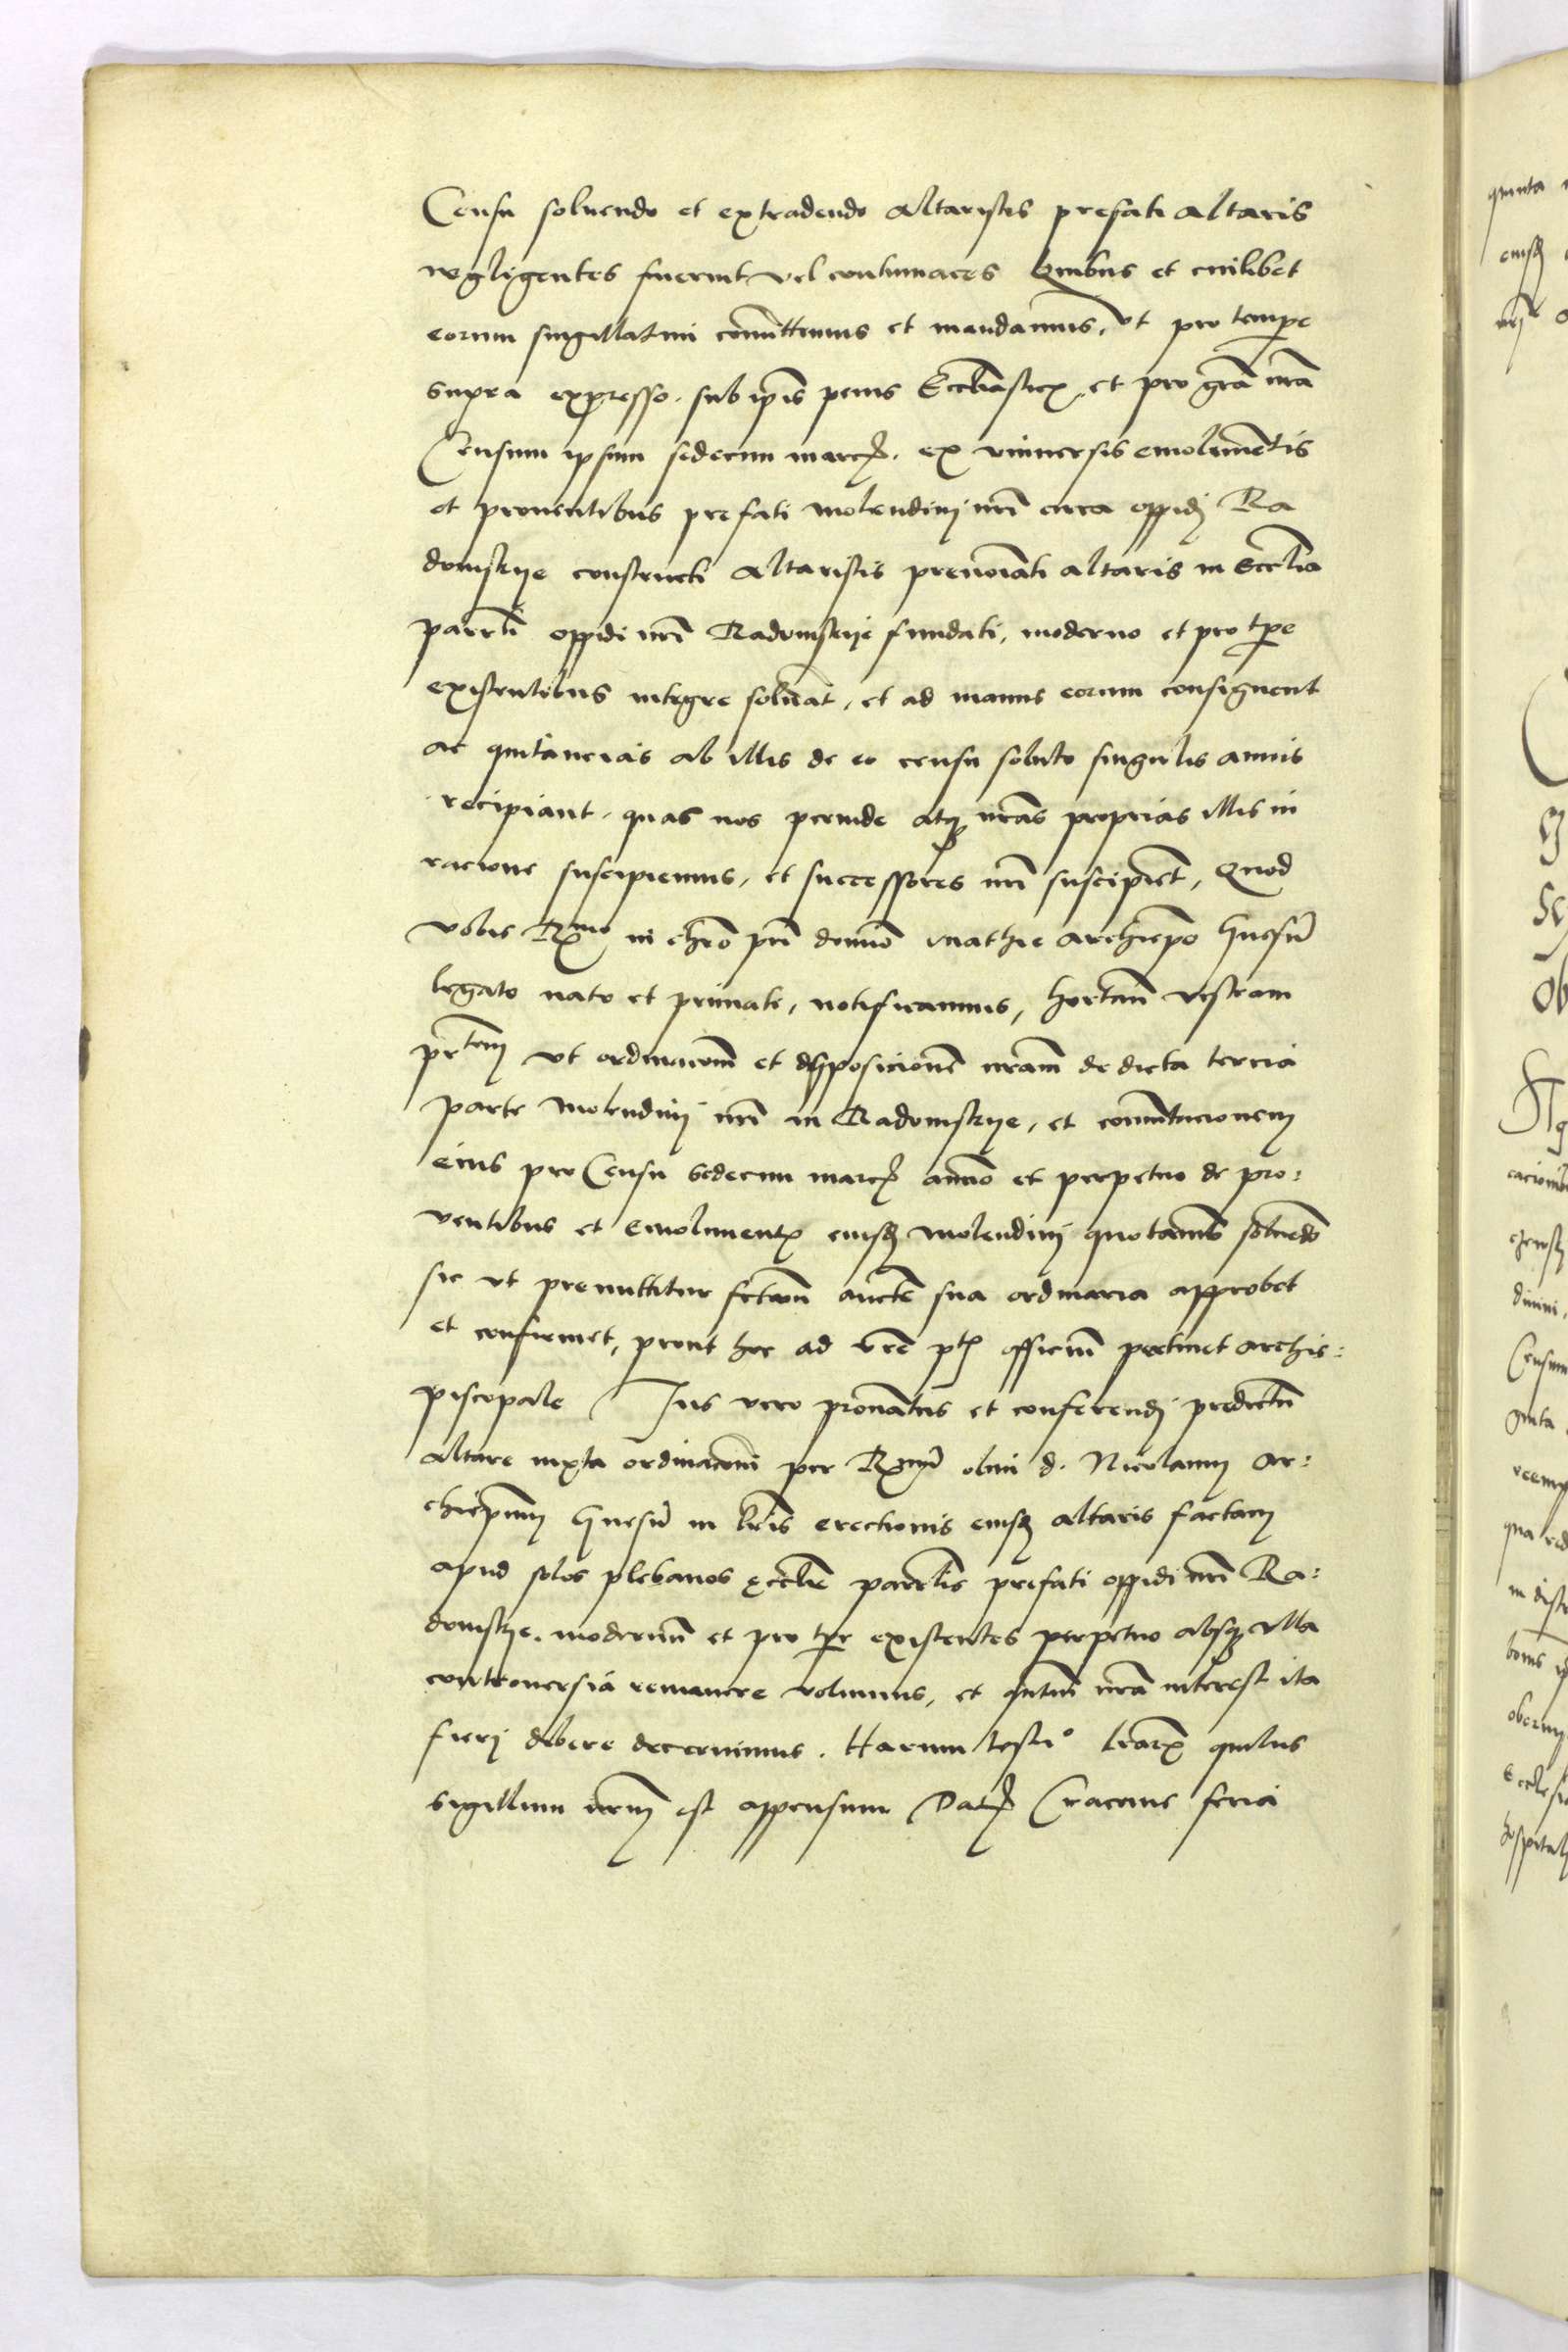 Censu soluendo et extradendo altaristis prefati altaris
negligentes fuerint vel contumaces Quibus et cuilibet
eorum singillatim com̃ittimus et mandamus, vt pro temp̱e
supra expresso. sub ip̃is penis Eccl̃iasticꝭ, et pro gr̃a nr̃a
Censum ipsum sedecim marcꝭ. ex vniuersis emolimẽtis
et prouentibus prefati molendinj nr̃i circa oppidj Ra
domskije constructi altaristis prenoĩati altaris in Eccl̃ia
parrli oppidi nr̃i Radomskije fundati, moderno et pro tp̱e
existentibus integre soluãt, et ad manus eorum consignent
ac quitancias ab illis de eo censu soluto singulis annis
recipiant. quas nos perinde atqꝫ nr̃as proprias illis in
racione suscipiemus, et successores nr̃i suscipiẽt, Quod
vobis Rxmo in chr̃o pr̃i domĩo Mathie archiep̃o Gnesñ
legato nato et primate, notificamus, hortañ vestram
pr̃tem vt ordinacõm et disposicionẽ nr̃am de dicta tercia
parte molendinj nr̃i in Radomskije, et com̃utacionem
eius pro Censu sedecim marcꝭ anno et perpetuo de pro:
ventibus et emolumentꝭ eiusꝫ molendinj quotannis soluẽdo
sic vt premittitur fctam̃ auctẽ sua ordinaria approbet
et confirmet, prout hoc ad vr̃e ptis officiũ pertinet archie:
piscopale Jus vero pronãtus et conferendj predictũ
altare iuxta ordinacõm per Rxmũ olim d. Nicolaum ar:
chiep̃um Gnesñ in lr̃is erectionis eiusꝫ altaris factam
apud solos plebanos eccl̃ie parrl̃is prefati oppidi nr̃i Ra:
domskije. modernũ et pro tp̱e existentes perpetuo absqꝫ vlla
controuersia remanere volumus, et qntũ nr̃a interest ita
fierj debere decernimus. Harum testiº lr̃arꝭ quibus
sigillum nr̃m est appensum Datꝭ Cracouie feria